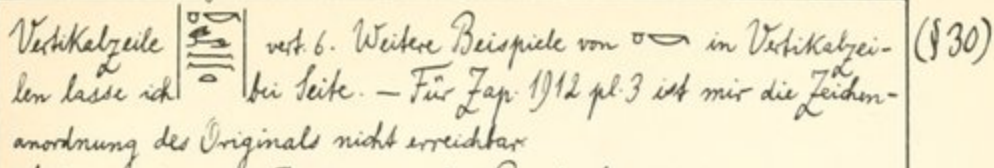 Vertikalzeile vert. 6. Weitere Beispiele von in Vertikalzei- (§ 30)
len lasse ich bei Seite. — Für Zap. 1912 pl. 3 ist mir die Zeichen-
anordnung des Originals nicht erreichbar.